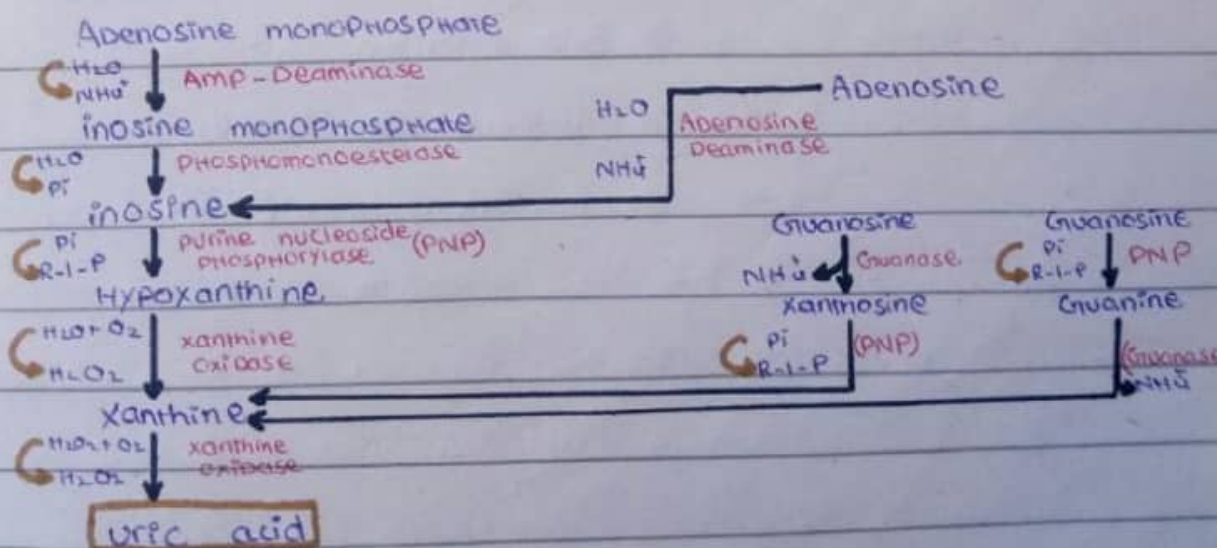 Adenosine monophosphate
H2O
NH4+
AMP-Deaminase
inosine monophosphate
H2O
Pi
phosphomonoesterase
inosine
Pi
R-1-P
purine nucleoside (PNP)
phosphorylase
Hypoxanthine
H2O+O2
H2O2
xanthine
oxidase
xanthine
H2O2+O2
H2O2
xanthine
oxidase
uric acid
Adenosine
H2O
NH4+
Adenosine
Deaminase
Guanosine
NH4+
Guanase
xanthosine
Pi
R-1-P
(PNP)
Guanosine
Pi
R-1-P
PNP
Guanine
(Guanase
NH4+